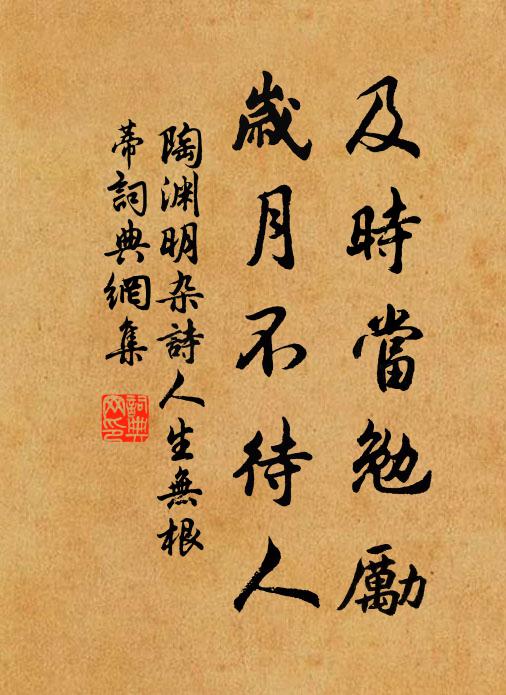 及時當勉勵
歲月不待人
陶渊明杂詩人生無根
蒂詞典網集
詞典
网印